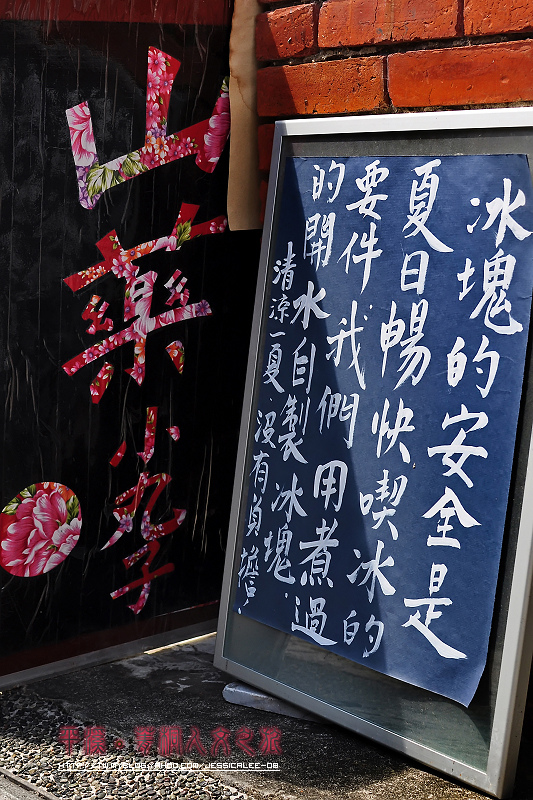 冰塊的安全是
夏日暢快喫冰的
要件.我們用煮過
的開水自製冰塊.
清涼一夏.沒有負擔
山藥小丸子